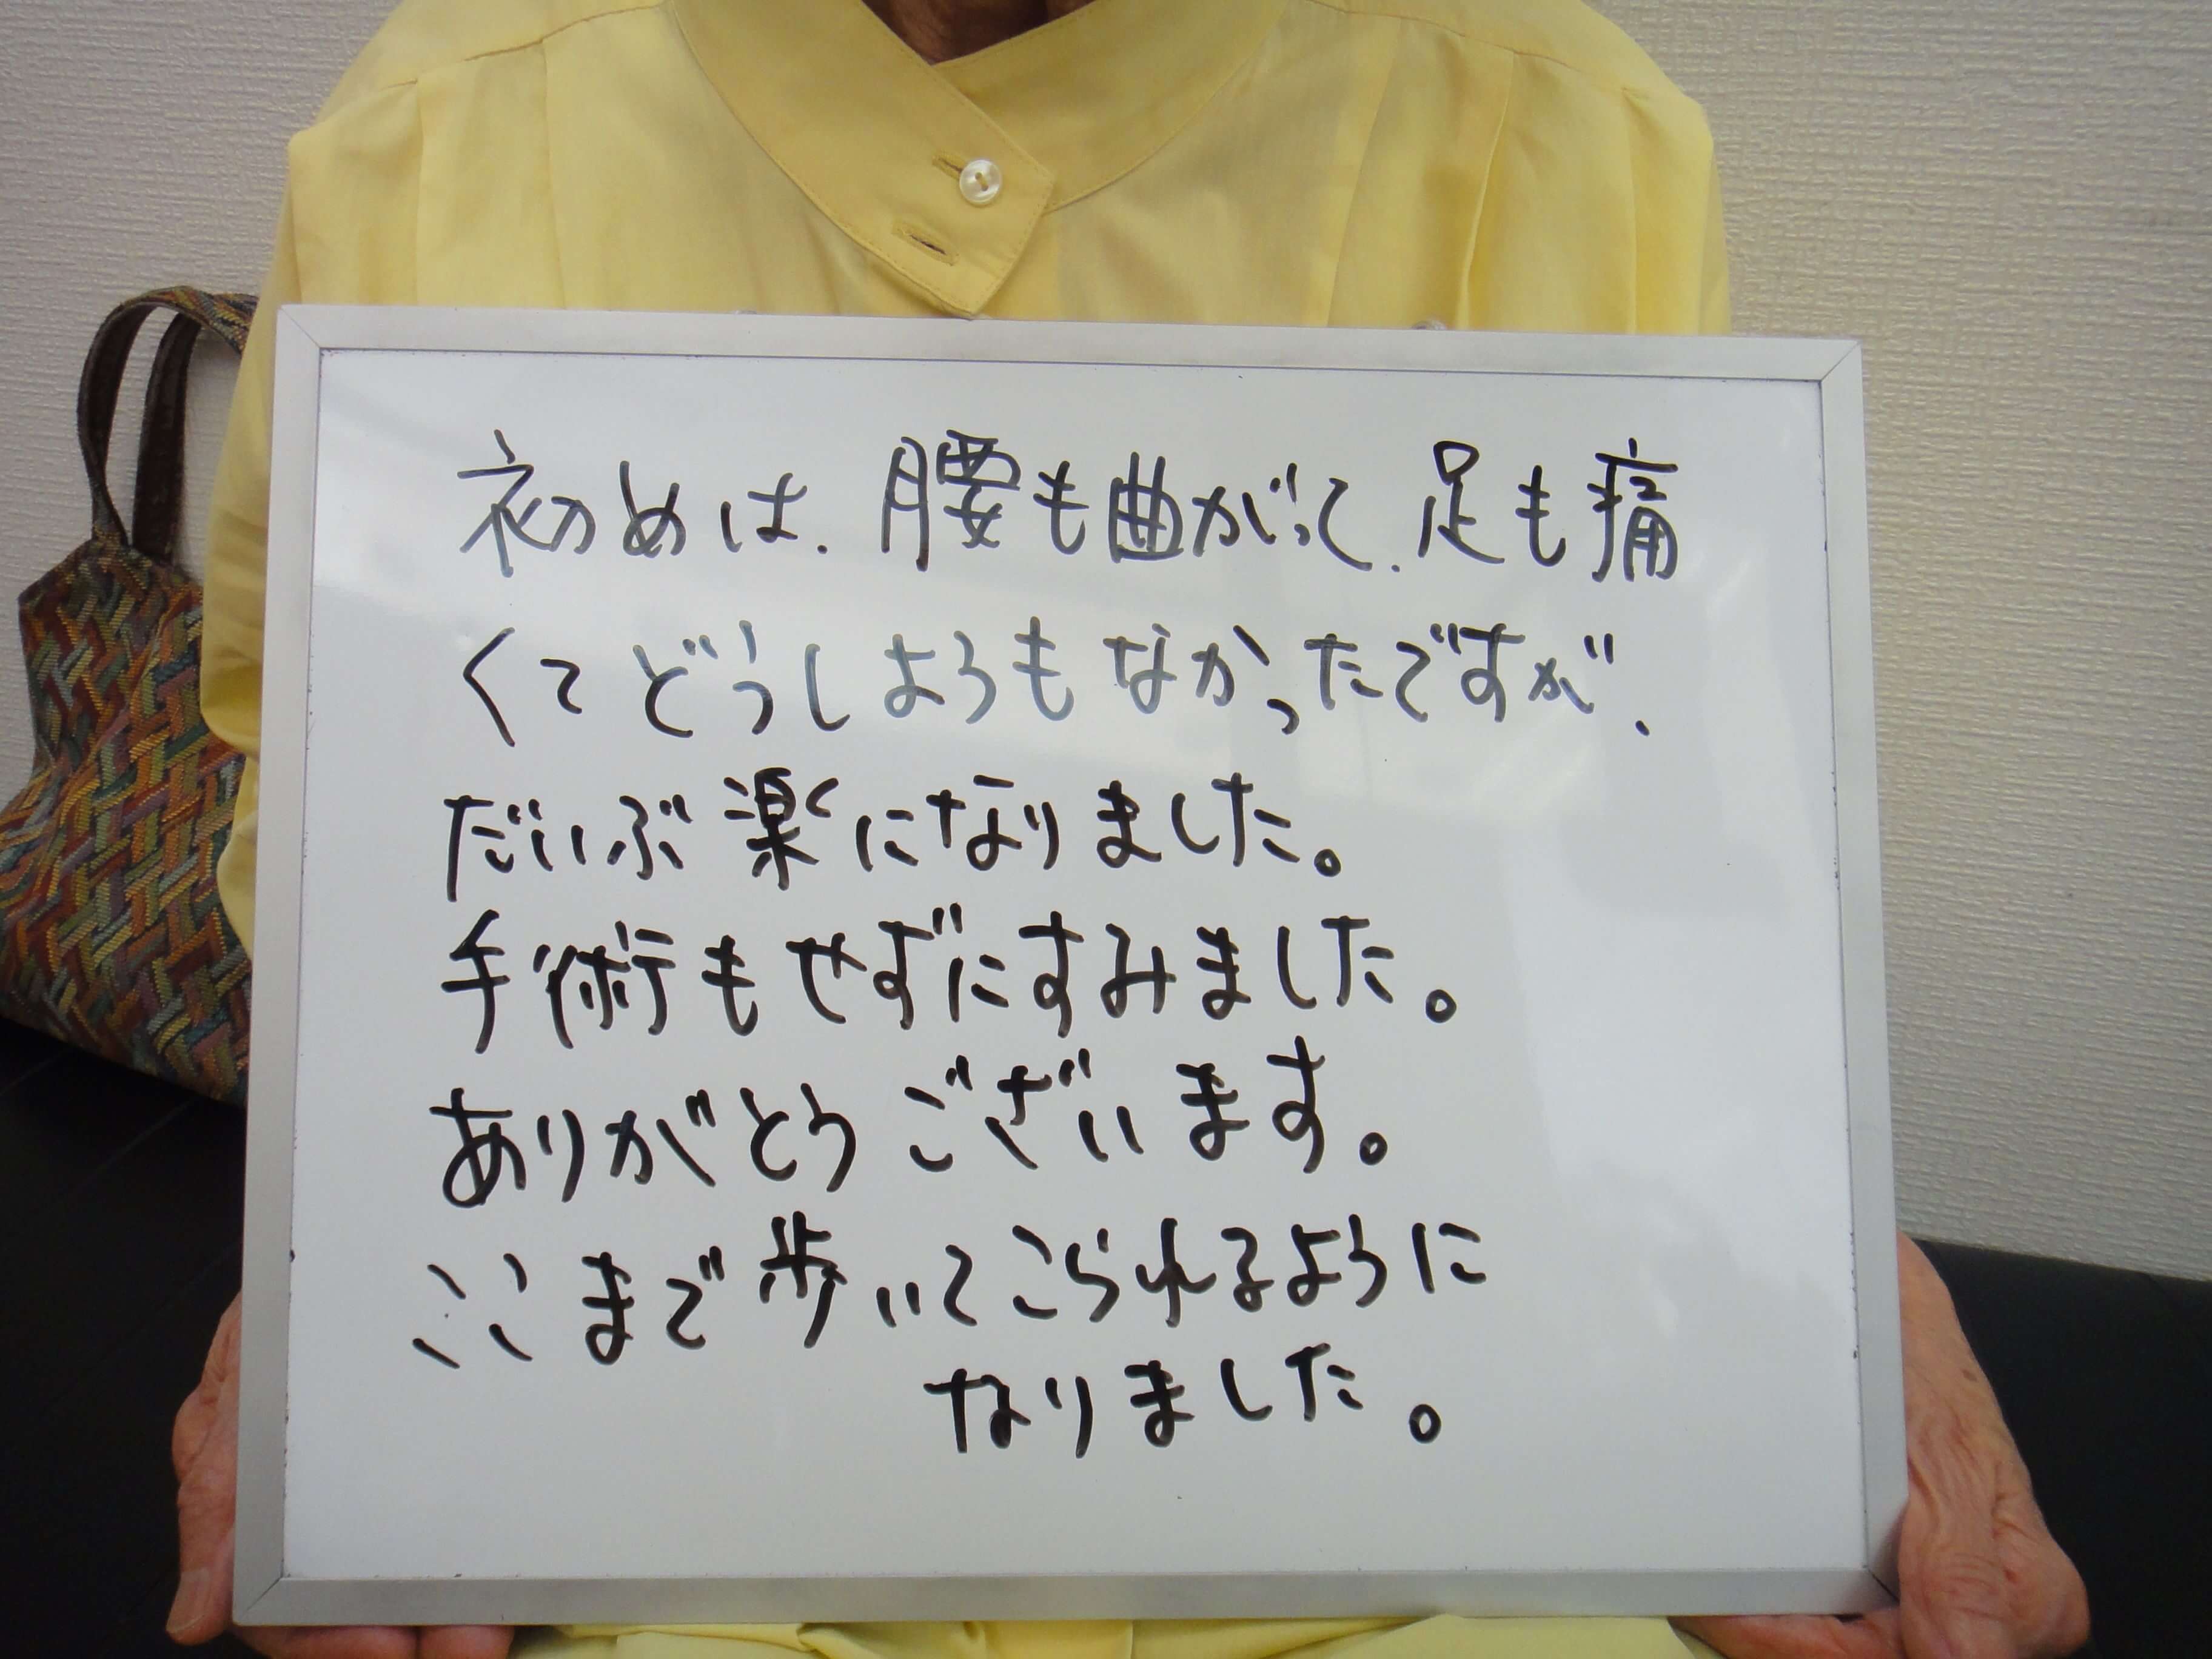 初めは、腰も曲がって、足も痛
くてどうしようもなかったですが、
だいぶ楽になりました。
手術もせずにすみました。
ありがとうございます。
ここまで歩いてこられるように
なりました。